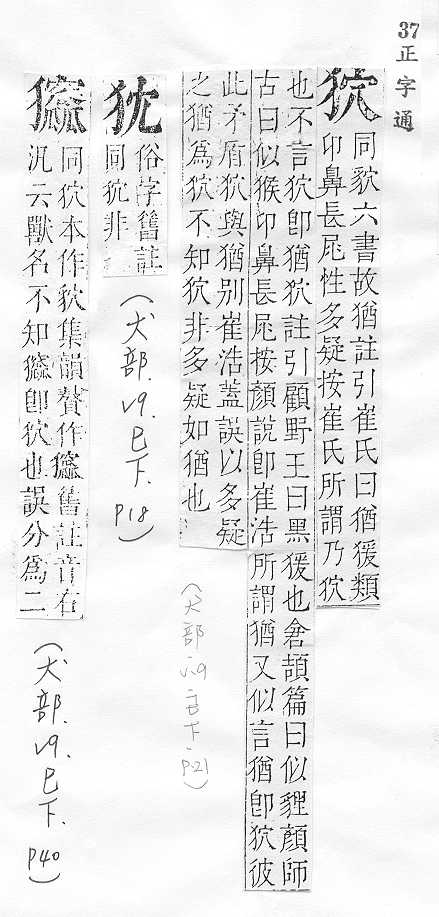 37 正字通
狖
同貁六書故猶註引崔氏曰猶猨類
卬鼻長尾性多疑按崔氏所謂乃狖
也不言狖卽猶狖註引顧野王曰黑猨也倉頡篇曰似貍顏師
古曰似猴卬鼻長尾按顏說卽崔浩所謂猶又似言猶卽狖彼
此矛盾狖與猶別崔浩蓋誤以多疑
之猶爲狖不知狖非多疑如猶也
(犬部.v9.巳下.p21)
俗字舊註
同狖非
(犬部.v9.巳下.p18)
同狖本作貁集韻贅作舊註音右
汎云獸名不知卽狖也誤分爲二
(犬部.v9.巳下.p40)